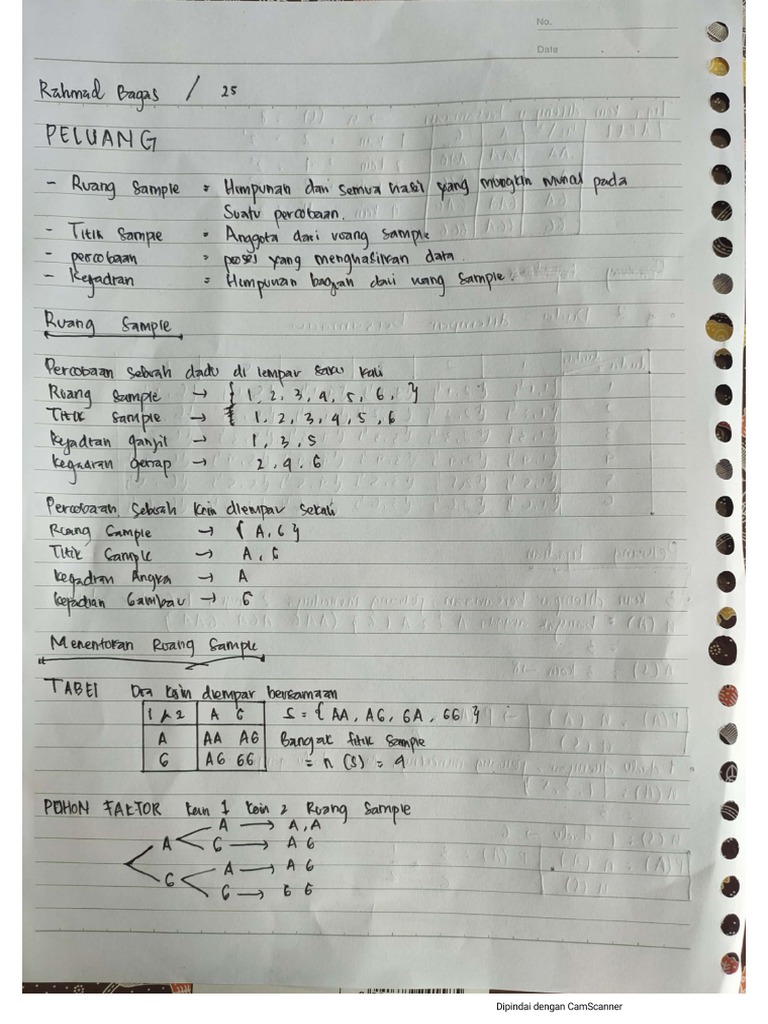 No.
Date
Rahmad Bagas / 25
PELUANG
- Ruang Sample = Himpunan dari semua hasil yang mungkin muncul pada
Suatu percobaan.
- Titik Sample = Anggota dari ruang sample
- percobaan = proses yang menghasilkan data.
- Kejadian = Himpunan bagian dari ruang sample.
Ruang Sample
Percobaan sebuah dadu di lempar satu kali
Ruang Sample → { 1, 2, 3, 4, 5, 6, }
Titik Sample → 1, 2, 3, 4, 5, 6
Kejadian ganjil → 1, 3, 5
Kejadian genap → 2, 4, 6
Percobaan sebuah koin dilempar sekali
Ruang Sample → { A, G }
Titik Sample → A, G
Kejadian Angka → A
Kejadian Gambar → G
Menentukan Ruang Sample
TABEL Dua koin dilempar bersamaan
1 \ 2 A G S = { AA, AG, GA, GG }
A AA AG Banyak titik sample
G AG GG = n (S) = 4
POHON FAKTOR koin 1 koin 2 Ruang Sample
A → A, A
A G → A G
A → A G
G G → G G
Dipindai dengan CamScanner